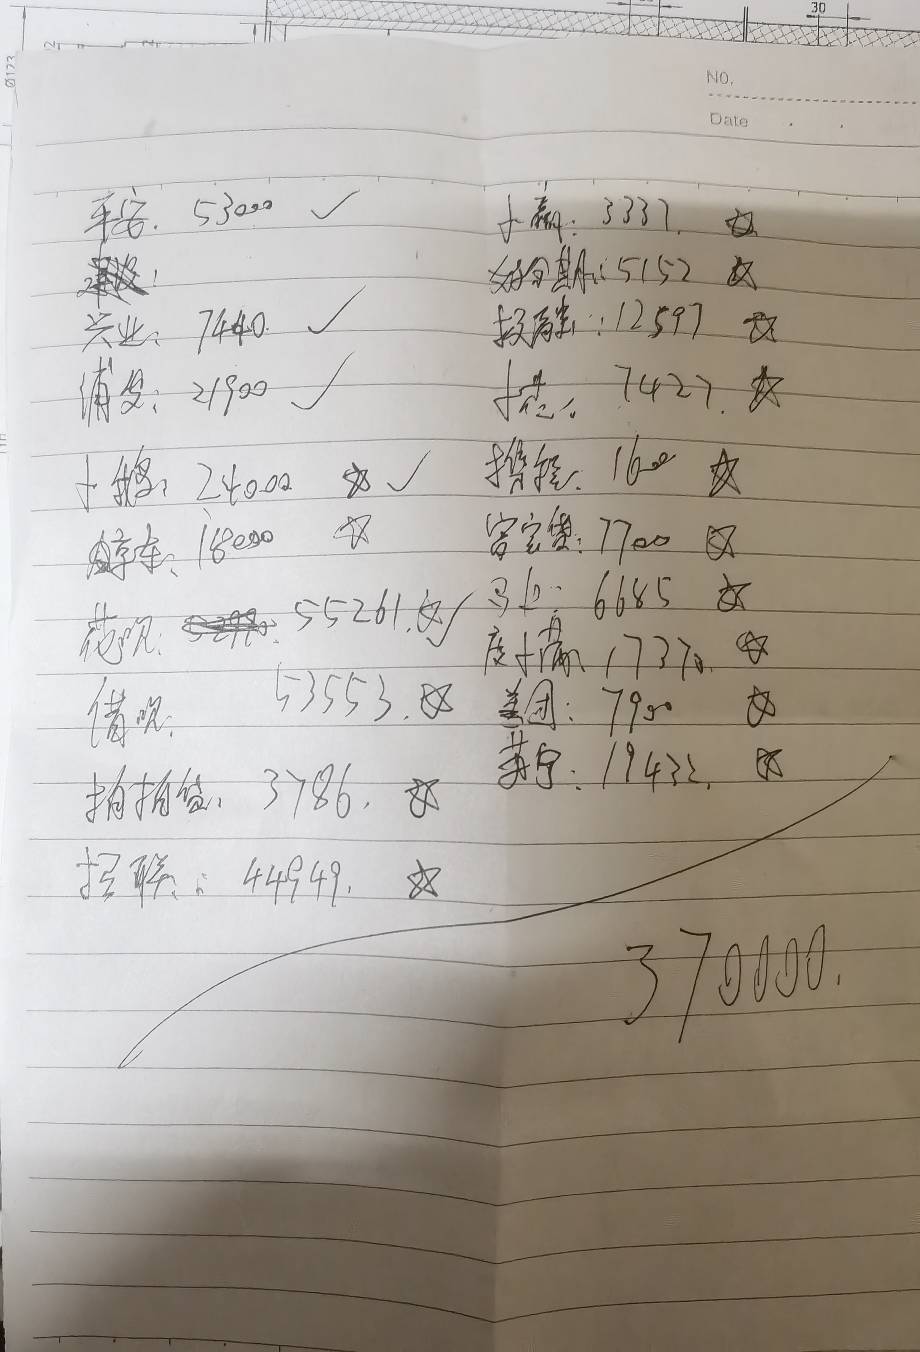 30
Ø123
NO.
Date
平安. 53000 ✓
兴业: 7440. ✓
浦发: 21900 ✓
24000 ☆ ✓
18000 ☆
花呗: 55261. ☆ ✓
借呗: 53553. ☆
拍拍贷: 3786. ☆
招联: 44949. ☆
卡赢: 3337. ☆
好分期: 5152 ☆
投资: 12597 ☆
7427. ☆
携程: 1600 ☆
7700 ☆
6685 ☆
17370. ☆
美团: 7900 ☆
苏宁: 19432. ☆
370000.